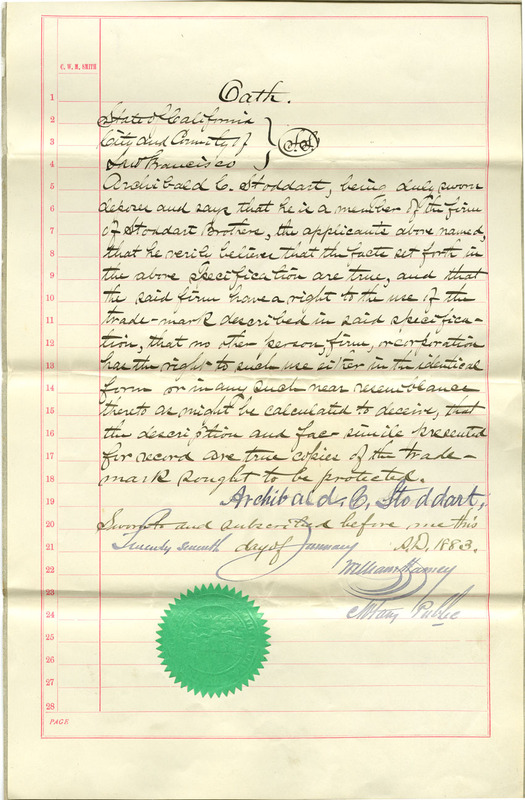 C. W. M. SMITH
1
Oath.
2 State of California
3 City and County of } ss.
4 San Francisco
5 Archibald C. Stoddart, being duly sworn
6 deposes and says that he is a member of the firm
7 of Stoddart Brothers, the applicants above named,
8 that he verily believes that the facts set forth in
9 the above specification are true, and that
10 the said firm have a right to the use of the
11 trade-mark described in said specifica-
12 tion, that no other person, firm, or corporation
13 has the right to such use either in the identical
14 form or in any such near resemblance
15 thereto as might be calculated to deceive, that
16 the description and fac-simile presented
17 for record are true copies of the trade-
18 mark sought to be protected.
19 Archibald. C. Stoddart.
20 Sworn to and subscribed before me this
21 Twenty seventh day of January A.D. 1883.
22 William Harney
23
24 Notary Public
25
26
27
28
PAGE